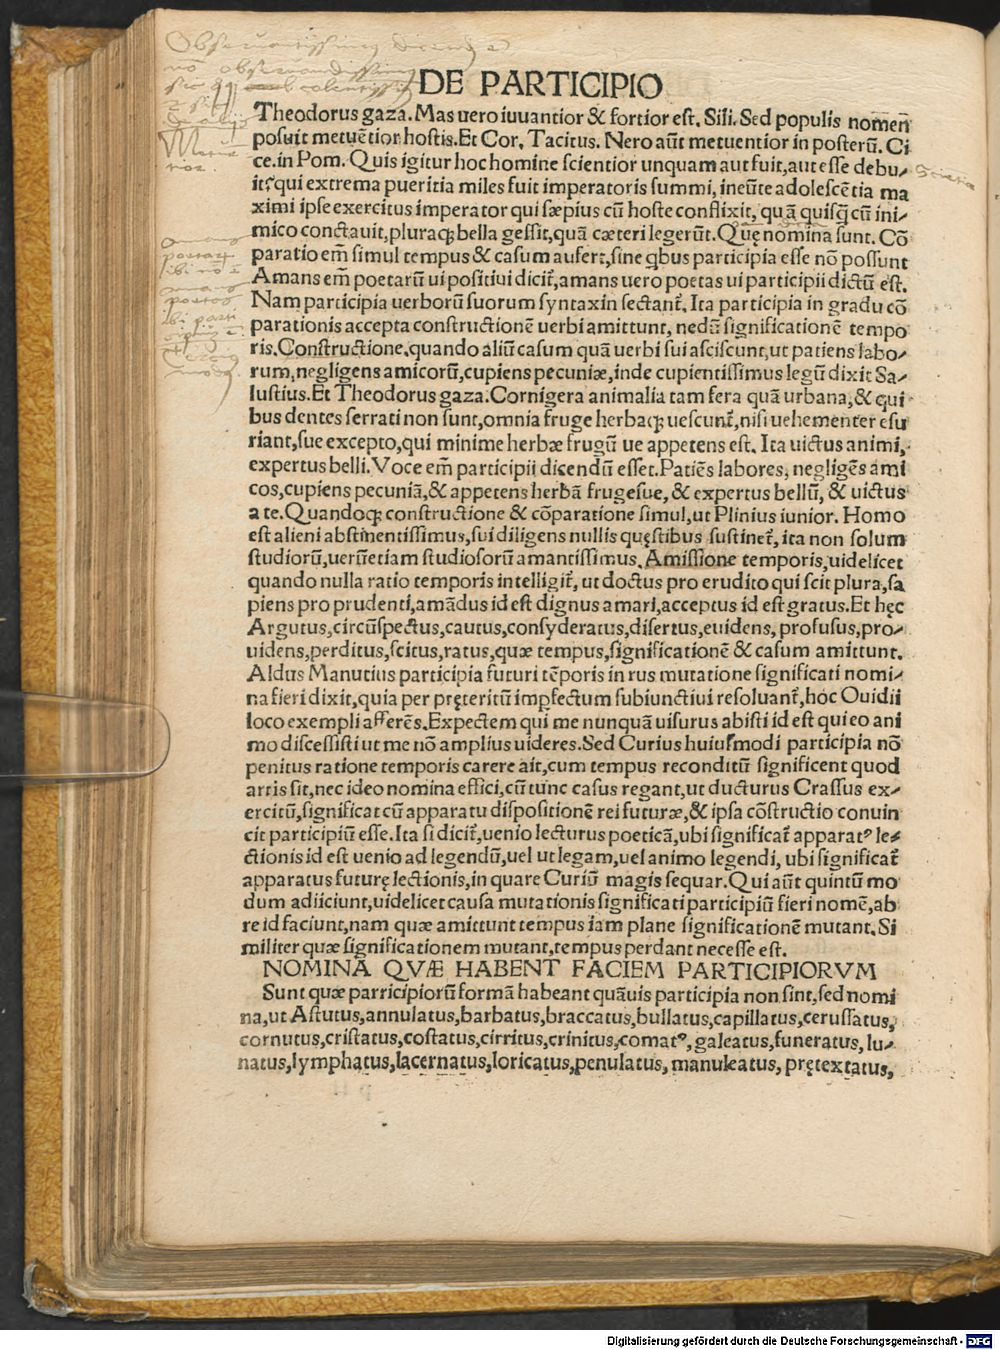 Obseruantissimus dicend
nō obseruandissimus
DE PARTICIPIO
Theodorus gaza. Mas uero iuuantior & fortior est. Sili. Sed populis nomen
posuit metuētior hostis. Et Cor, Tacitus. Nero aūt metuentior in posterū. Ci
ce. in Pom. Quis igitur hoc homine scientior unquam aut fuit, aut esse debu-
it, qui extrema pueritia miles fuit imperatoris summi, ineūte adolescētia ma
ximi ipse exercitus imperator qui sæpius cū hoste conflixit, quā quisq̄ cū ini-
mico conctauit, pluraq; bella gessit, quā cæteri legerūt. Quę nomina sunt. Cō
paratio em̄ simul tempus & casum aufert, sine qbus participia esse nō possunt
Amans em̄ poetarū ui positiui dicit̄, amans uero poetas ui participii dictū est.
Nam participia uerborū suorum syntaxin sectant̄. Ita participia in gradu cō
parationis accepta constructionē uerbi amittunt, nedū significationē tempo
ris. Constructione, quando aliū casum quā uerbi sui asciscunt, ut patiens labo-
rum, negligens amicorū, cupiens pecuniæ, inde cupientissimus legū dixit Sa-
lustius. Et Theodorus gaza. Cornigera animalia tam fera quā urbana, & qui
bus dentes serrati non sunt, omnia fruge herbaq; uescunt̄, nisi uehementer esu
riant, sue excepto, qui minime herbæ frugū ue appetens est. Ita uictus animi,
expertus belli. Voce em̄ participii dicendū esset. Patiēs labores, negligēs ami
cos, cupiens pecuniā, & appetens herbā frugesue, & expertus bellū, & uictus
a te. Quandoq; constructione & cōparatione simul, ut Plinius iunior. Homo
est alieni abstinentissimus, sui diligens nullis quęstibus sustinet̄, ita non solum
studiorū, uerūetiam studiosorū amantissimus. Amissione temporis, uidelicet
quando nulla ratio temporis intelligit̄, ut doctus pro erudito qui scit plura, sa
piens pro prudenti, amādus id est dignus amari, acceptus id est gratus. Et hęc
Argutus, circūspectus, cautus, consyderatus, disertus, euidens, profusus, pro-
uidens, perditus, scitus, ratus, quæ tempus, significationē & casum amittunt.
Aldus Manutius participia futuri tēporis in rus mutatione significati nomi-
na fieri dixit, quia per pręteritū impfectum subiunctiui resoluant̄, hoc Ouidii
loco exempli afferēs. Expectem qui me nunquā uisurus abisti id est qui eo ani
mo discessisti ut me nō amplius uideres. Sed Curius huiusmodi participia nō
penitus ratione temporis carere ait, cum tempus reconditū significent quod
artis sit, nec ideo nomina effici, cū tunc casus regant, ut ducturus Crassus ex-
ercitū, significat cū apparatu dispositionē rei futuræ, & ipsa cōstructio conuin
cit participiū esse. Ita si dicit̄, uenio lecturus poeticā, ubi significat̄ apparatꝰ le-
ctionis id est uenio ad legendū, uel ut legam, uel animo legendi, ubi significat̄
apparatus futurę lectionis, in quare Curiū magis sequar. Qui aūt quintū mo
dum adiiciunt, uidelicet causa mutationis significati participiū fieri nomē, ab
re id faciunt, nam quæ amittunt tempus iam plane significationē mutant. Si
militer quæ significationem mutant, tempus perdant necesse est.
NOMINA QVÆ HABENT FACIEM PARTICIPIORVM
Sunt quæ parricipiorū formā habeant quāuis participia non sint, sed nomi
na, ut Astutus, annulatus, barbatus, braccatus, bullatus, capillatus, cerussatus,
cornutus, cristatus, costatus, cirritus, crinitus, comatꝰ, galeatus, funeratus, lu-
natus, lymphatus, lacernatus, loricatus, penulatus, manuleatus, prętextatus,
Digitalisierung gefördert durch die Deutsche Forschungsgemeinschaft - DFG